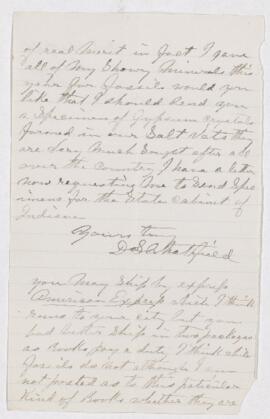 of real Merit in fact I gave
all of My Showy Minerals this
year for fossils would you
like that I should Send you
a Specimen of Gypsum crystals
formed in our Salt Vats they
are Very Much Sought after all
over the Country I have a letter
now requesting Me to Send Spe
cimens for the State Cabinet of
Indiana
Yours truly
D S
you May Ship by express
American Express which I think
runs to your city but you
had better Ship in two packages
as Books pay a duty I think while
fossils do not although I am
not posted as to this peticular
Kind of Books whether they are